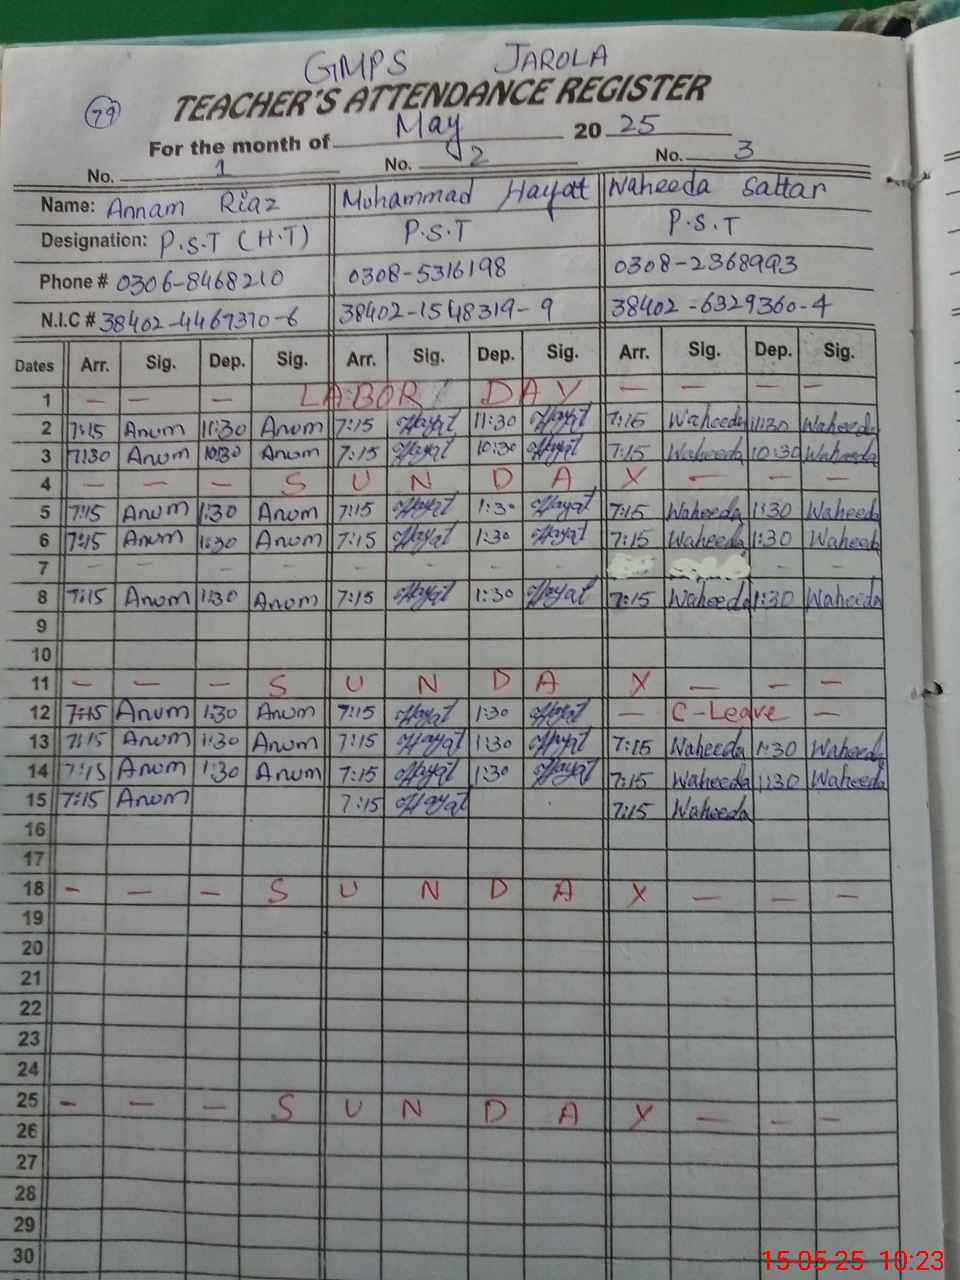 GMPS JAROLA
TEACHER'S ATTENDANCE REGISTER
79
For the month of May 2025
No. 1 No. 2 No. 3
Name: Annam Riaz Muhammad Hayat Waheeda Sattar
Designation: P.S.T (H.T) P.S.T P.S.T
Phone # 0306-8468210 0308-5316198 0308-2368993
N.I.C # 38402-4467370-6 38402-1548319-9 38402-6329360-4
Dates Arr. Sig. Dep. Sig. Arr. Sig. Dep. Sig. Arr. Sig. Dep. Sig.
1 — — — LABOR DAY — — — —
2 7:15 Anum 11:30 Anum 7:15 Hayat 11:30 Hayat 7:15 Waheeda 11:30 Waheeda
3 7:30 Anum 10:30 Anum 7:15 Hayat 10:30 Hayat 7:15 Waheeda 10:30 Waheeda
4 — — — S U N D A Y — — —
5 7:15 Anum 1:30 Anum 7:15 Hayat 1:30 Hayat 7:15 Waheeda 1:30 Waheeda
6 7:15 Anum 1:30 Anum 7:15 Hayat 1:30 Hayat 7:15 Waheeda 1:30 Waheeda
7 - - - - - - - - - -
8 7:15 Anum 1:30 Anum 7:15 Hayat 1:30 Hayat 7:15 Waheeda 1:30 Waheeda
9
10
11 — — — S U N D A Y — — —
12 7:15 Anum 1:30 Anum 7:15 Hayat 1:30 Hayat — C-Leave —
13 7:15 Anum 1:30 Anum 7:15 Hayat 1:30 Hayat 7:15 Waheeda 1:30 Waheeda
14 7:15 Anum 1:30 Anum 7:15 Hayat 1:30 Hayat 7:15 Waheeda 1:30 Waheeda
15 7:15 Anum 7:15 Hayat 7:15 Waheeda
16
17
18 — — — S U N D A Y — — —
19
20
21
22
23
24
25 — — — S U N D A Y — — —
26
27
28
29
30
15-05-25 10:23